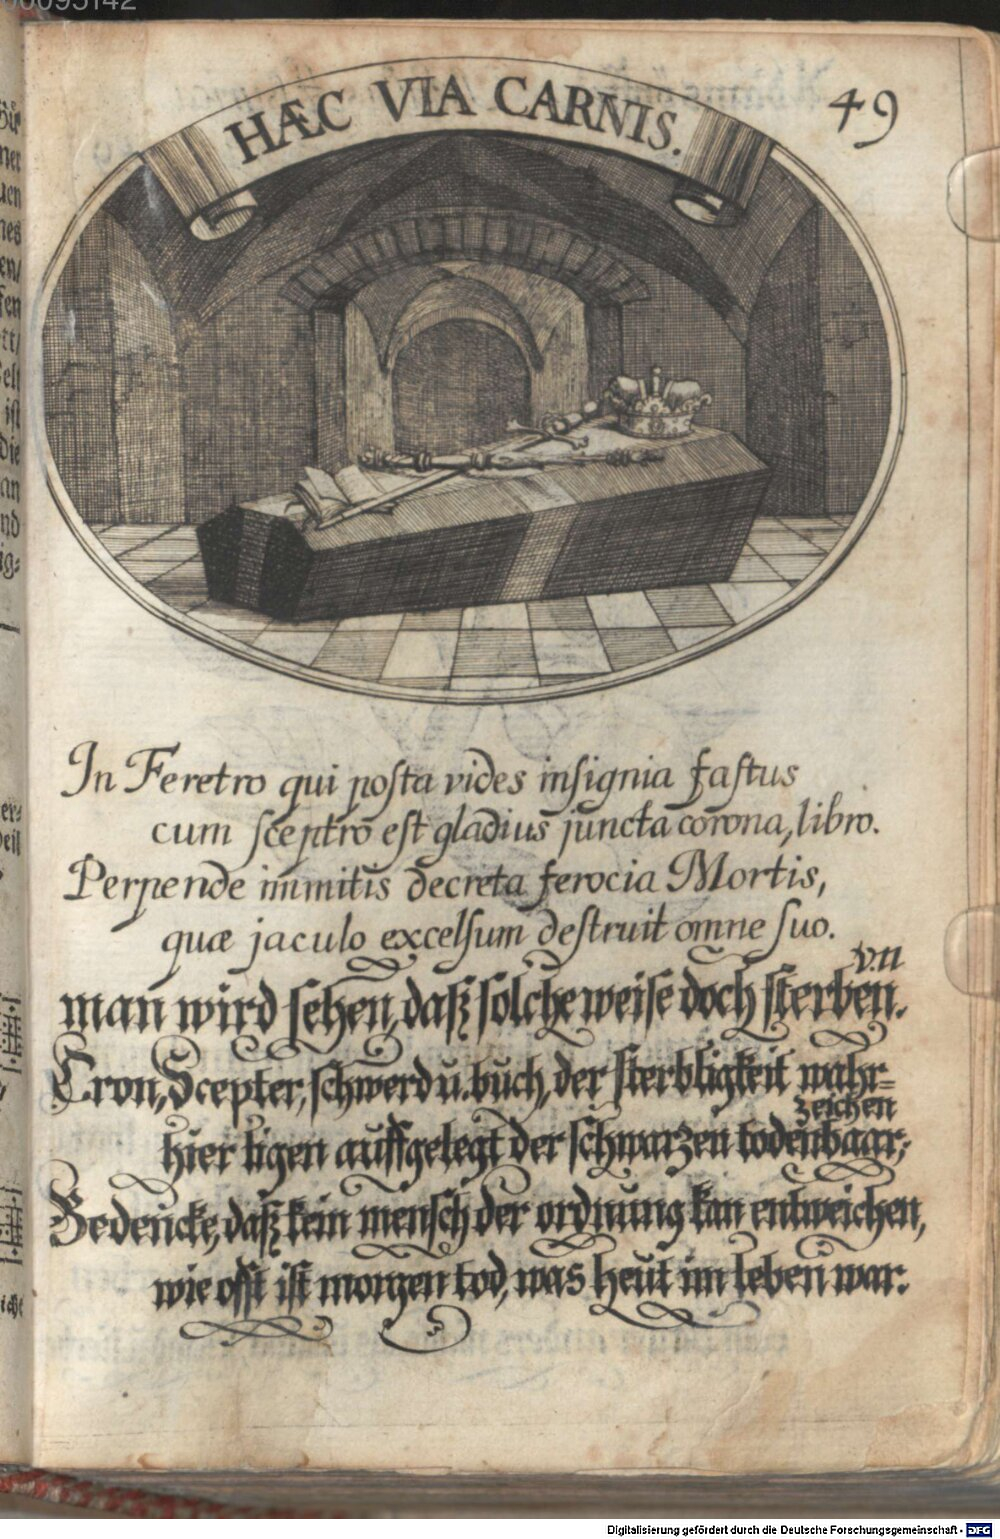 00095142
HÆC VIA CARNIS.
49
In Feretro qui posta vides insignia fastus
cum sceptro est gladius juncta corona, libro.
Perpende immitis decreta ferocia Mortis,
quæ jaculo excelsum destruit omne suo.
man wird sehen, daß solche weise doch sterben.
Cron, Scepter, schwerd u. buch, der sterbligkeit wahr=
zeichen
hier ligen auffgelegt der schwarzen todenbaar;
Bedencke, daß kein mensch der ordnung kan entweichen,
wie offt ist morgen tod, was heut im leben war.
Digitalisierung gefördert durch die Deutsche Forschungsgemeinschaft - DFG